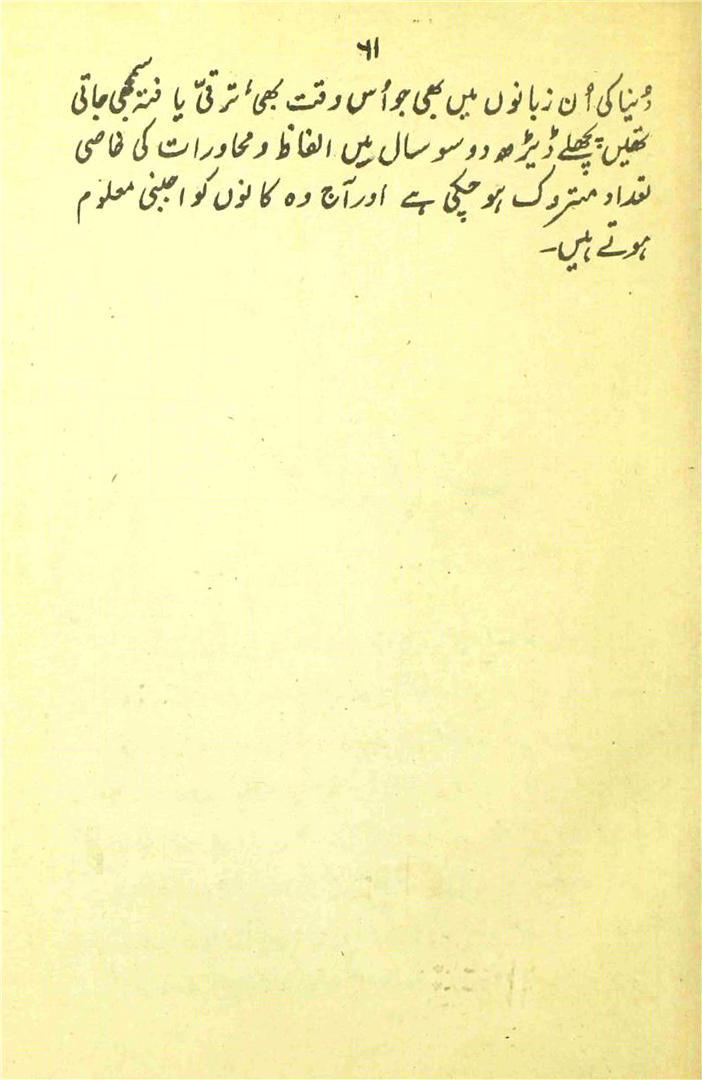 ۶۱
دُنیا کی اُن زبانوں میں بھی جو اُس وقت بھی ترقیّ یافتہ سمجھی جاتی
تھیں پچھلے ڈیڑھ دو سو سال میں الفاظ و محاورات کی خاصی
تعداد متروک ہو چکی ہے اور آج وہ کانوں کو اجنبی معلوم
ہوتے ہیں۔